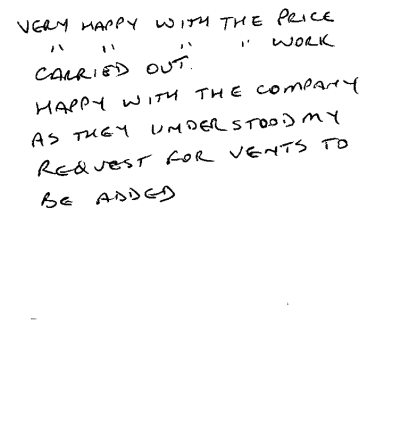 VERY HAPPY WITH THE PRICE
" " " " WORK
CARRIED OUT.
HAPPY WITH THE COMPANY
AS THEY UNDERSTOOD MY
REQUEST FOR VENTS TO
BE ADDED